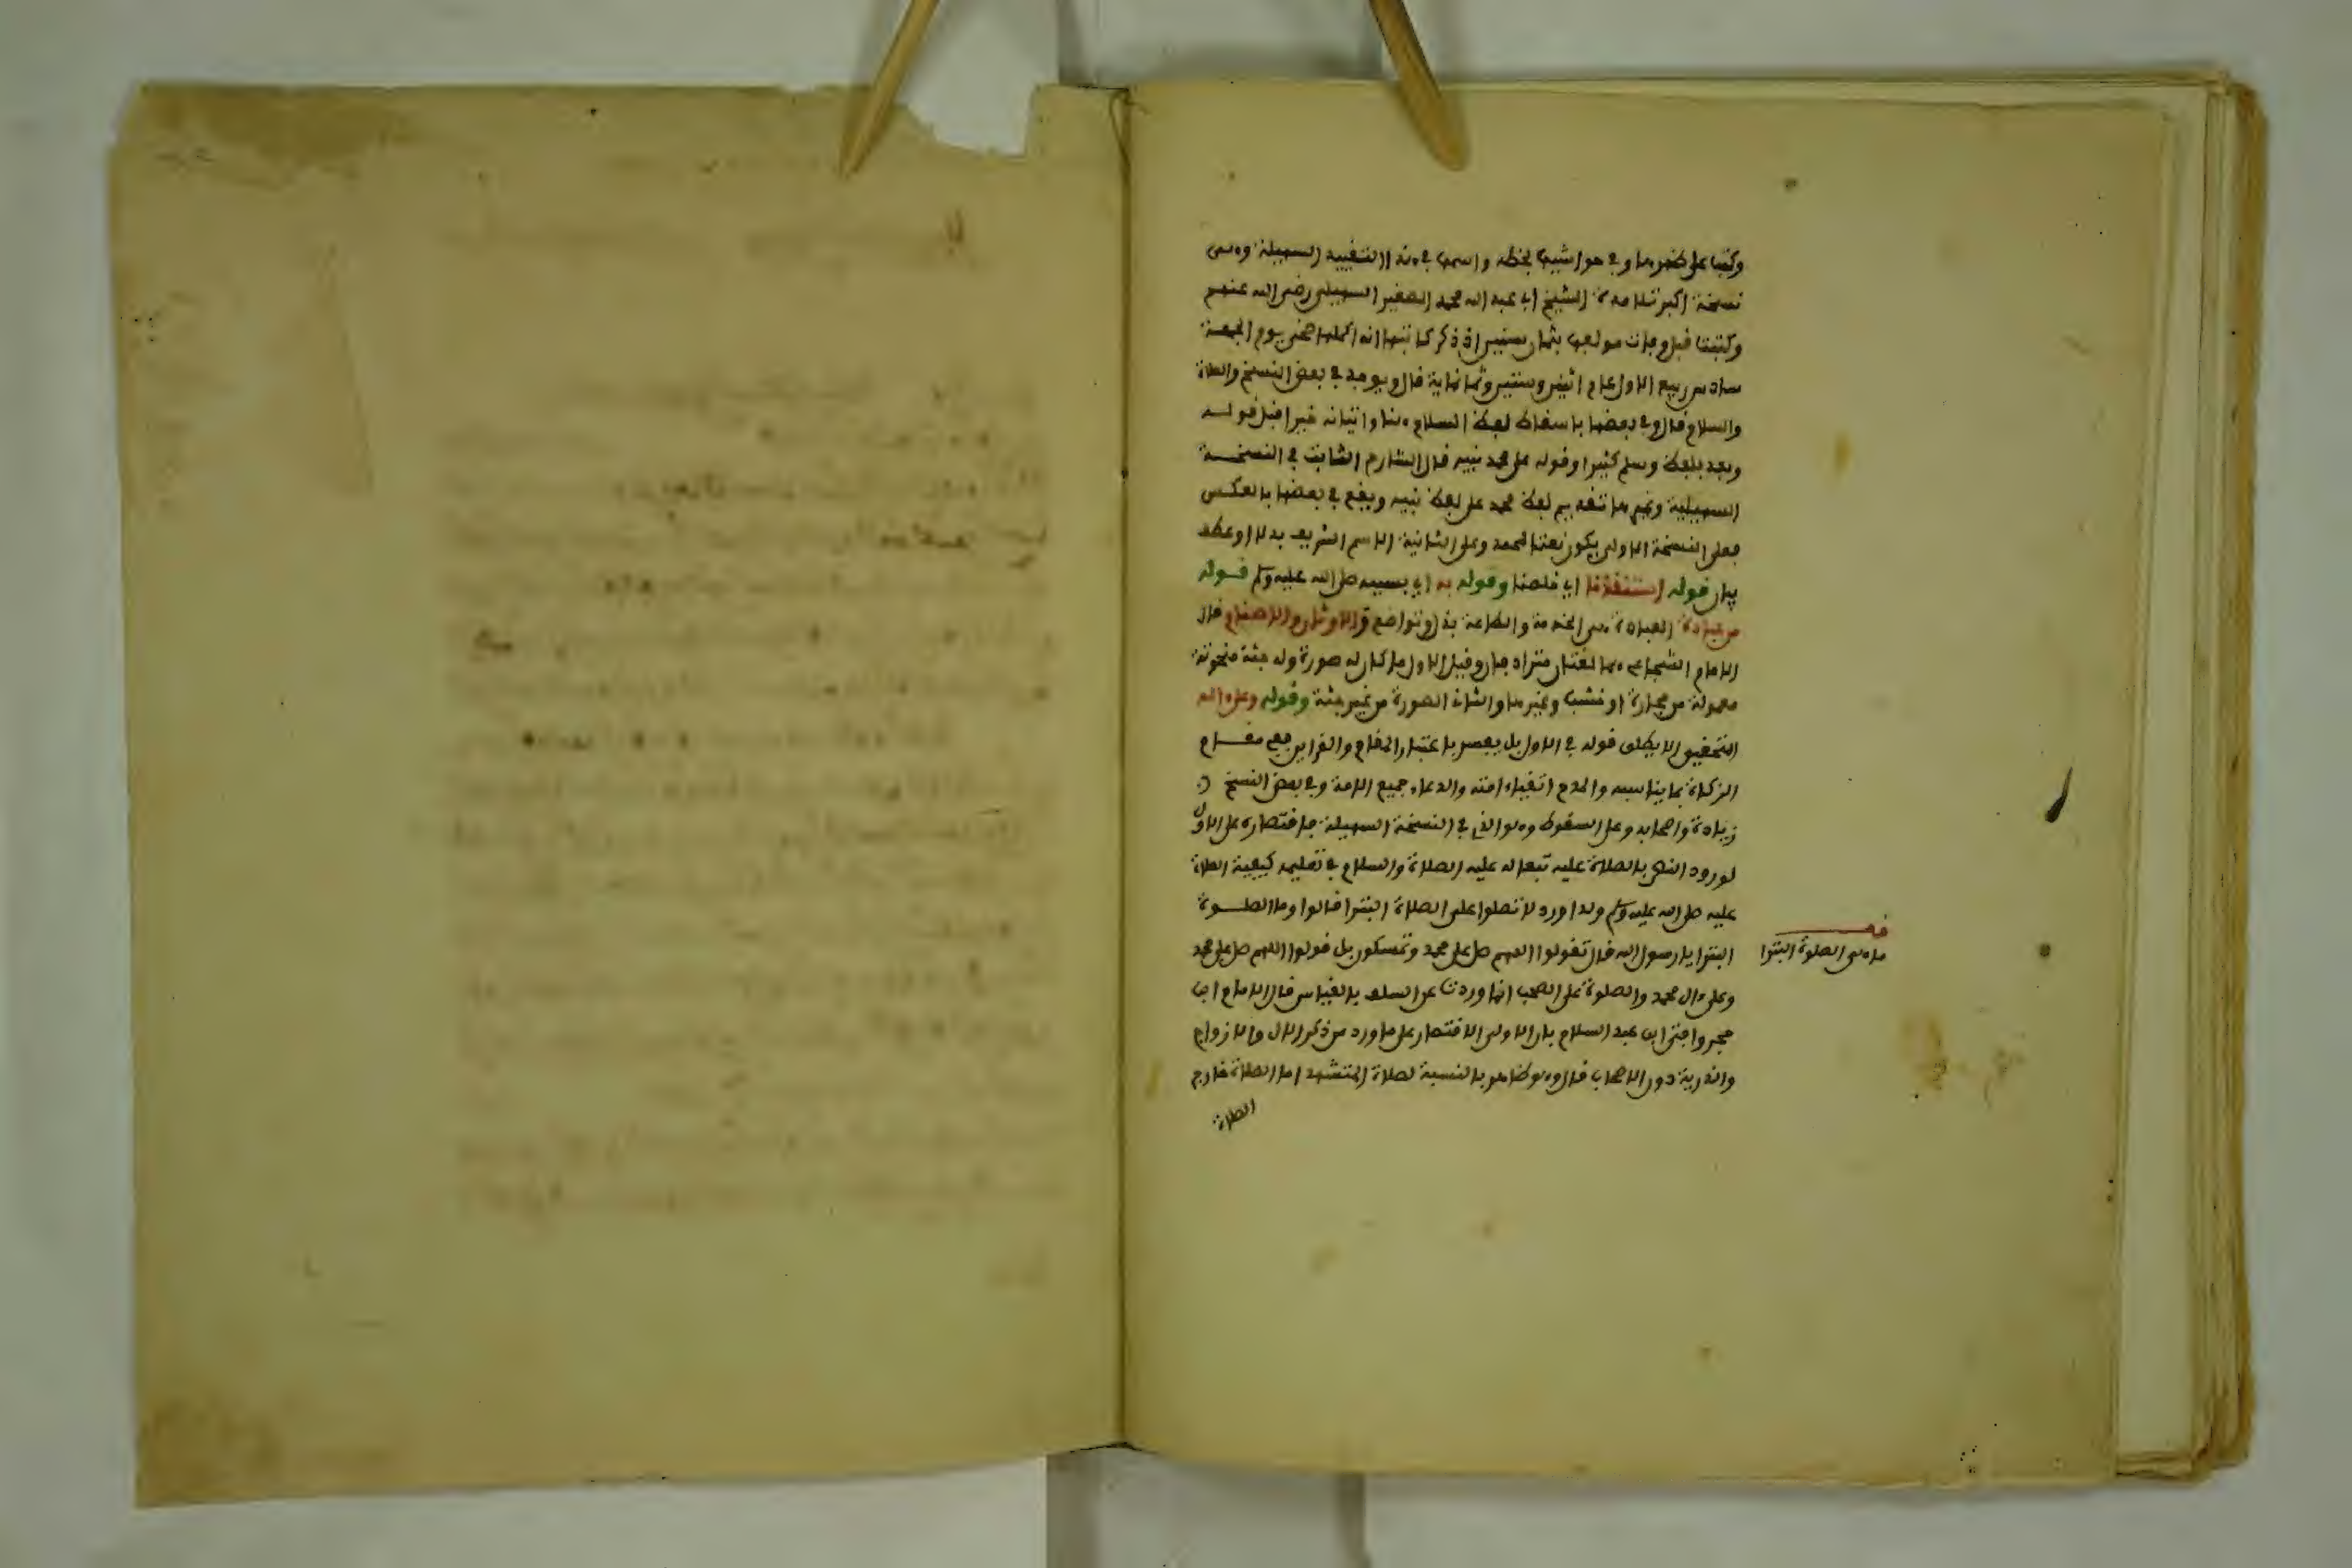 وكتبا على ظهرها وفي حواشيها بخطه واسمها في هذا التقييد السهيلة وهى
نسخة اكبر تلامذة الشيخ ابي عبد الله محمد الصغير السهيلي رضى الله عنهم
وكتبت قبل وفات مولفها بثمان سنين اذ ذكر كاتبها انه اكملها ضحى يوم الجمعة
سادس ربيع الاول عام اثنين وستين وثمانماية قال ويوجد في بعض النسخ والصلاة
والسلام قال وفي بعضها باسقاط لفظ السلام هنا واتيانه خبرا قبل قولـه
وبعد بلفظ وسلم كثيرا وقوله على محمد نبيه قال الشارح الثابت في النسخـة
السهيلية وغيرها تقديم لفظ محمد على لفظ نبيه ويقع في بعضها بالعكس
فعلى النسخة الاولى يكون نعتا لمحمد وعلى الثانية الاسم الشريف بدلا او عطف
بيان قوله استنقذنا اي خلصنا وقوله به اي بسببه صلى الله عليه وسلم قـوله
من عبادة العبادة هى الخدمة والطاعة بذل وتواضع والاوثان والاصنام قال
الامام الشجاعي هما لفظان مترادفان وقيل الاول ما كان له صورة وله جثة منحوتة
معمولة من حجارة او خشب وغيرها والثان الصورة من غير جثة وقوله وعلى اله
التحقيق لا يطلق قوله في الاول بل يفسر باعتبار المقام والقراين ففي مقـام
الزكاة بما يناسبه والمدح اتقياء امته والدعاء جميع الامة وفي بعض النسخ
زيادة واصحابه وعلى السقوط وهو الذي في النسخة السهيلة فاقتصاره على الاول
لورود النص بالصلاة عليه تبعا له عليه الصلاة والسلام في تعليمه كيفية الصلاة
عليه صلى الله عليه وسلم ولما ورد لا تصلوا على الصلاة البترا قالوا وما الصلـوة
البترا يا رسول الله قال تقولوا اللهم صل على محمد وتمسكون بل قولوا اللهم صل على محمد
وعلى ءال محمد والصلوة على الصحب انما وردت عن السلف بالقياس قال الامام ابن
حجر وافتى ابن عبد السلام بان الاولى الاقتصار على ما ورد من ذكر الال والازواج
والذرية دون الاصحاب قال وهو ظاهر بالنسبة لصلاة المتشهد اما الصلاة خارج
الصلاة
قف
ما هى الصلوة البترا